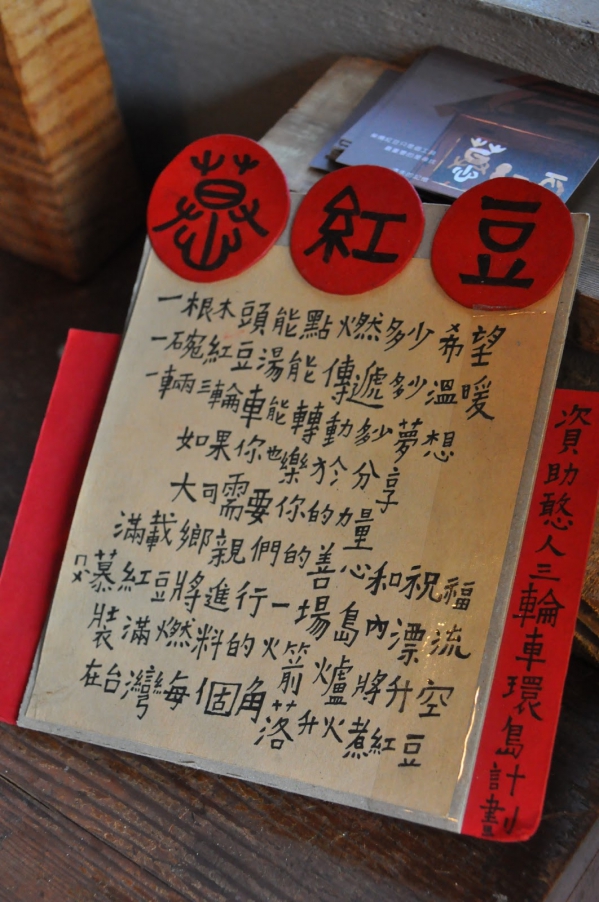 慕紅豆
一根木頭能點燃多少希望
一碗紅豆湯能傳遞多少溫暖
一輛三輪車能轉動多少夢想
如果你也樂於分享
大可需要你的力量
滿載鄉親們的善心和祝福
慕紅豆將進行一場島內漂流
裝滿燃料的火箭爐將升空
在台灣每個角落升火煮紅豆
資助憨人三輪車環島計劃